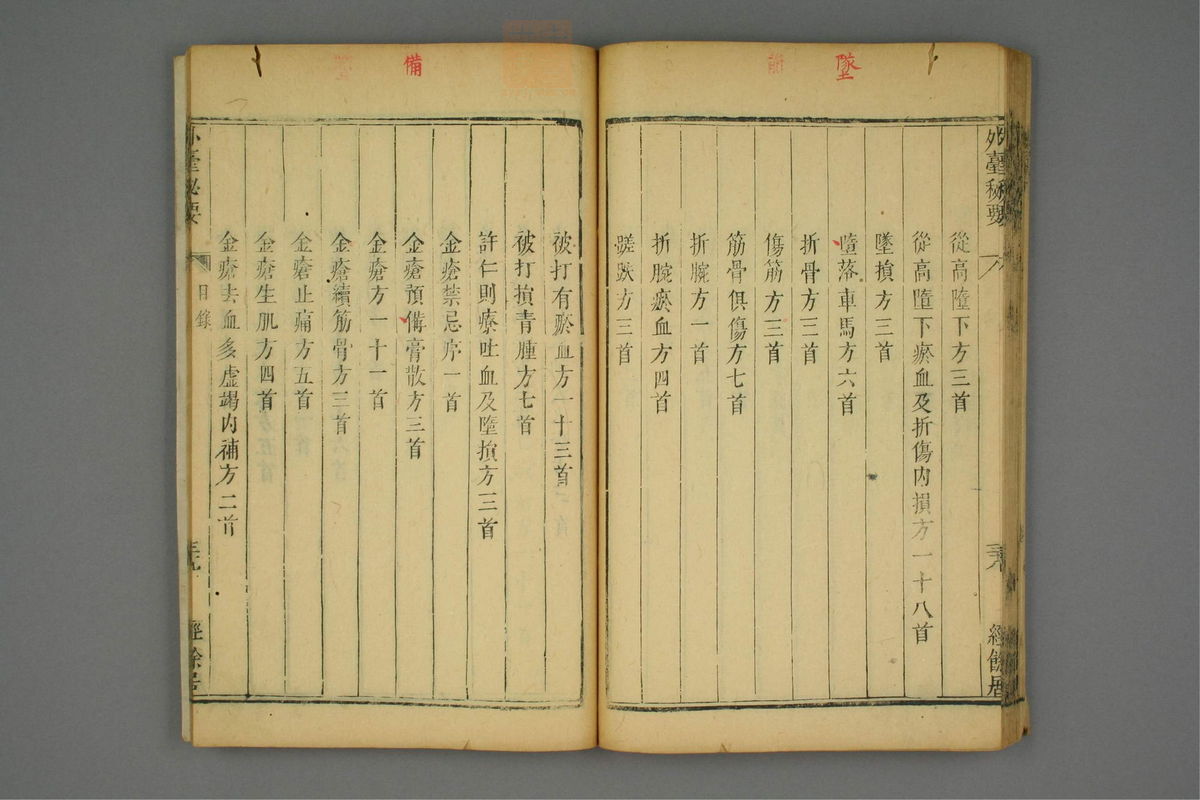 墜
外臺秘要
從高墮下方三首
從高墮下瘀血及折傷內損方一十八首
墜損方三首
墮落車馬方六首
折骨方三首
傷筋方三首
筋骨俱傷方七首
折腕方一首
折腕瘀血方四首
蹉跌方三首
經餘居
備
被打有瘀血方一十三首
被打損青腫方七首
許仁則療吐血及墮損方三首
金瘡禁忌序一首
金瘡預備膏散方三首
金瘡方一十一首
金瘡續筋骨方三首
金瘡止痛方五首
金瘡生肌方四首
金瘡去血多虛竭內補方二首
外臺秘要
目錄
經餘居